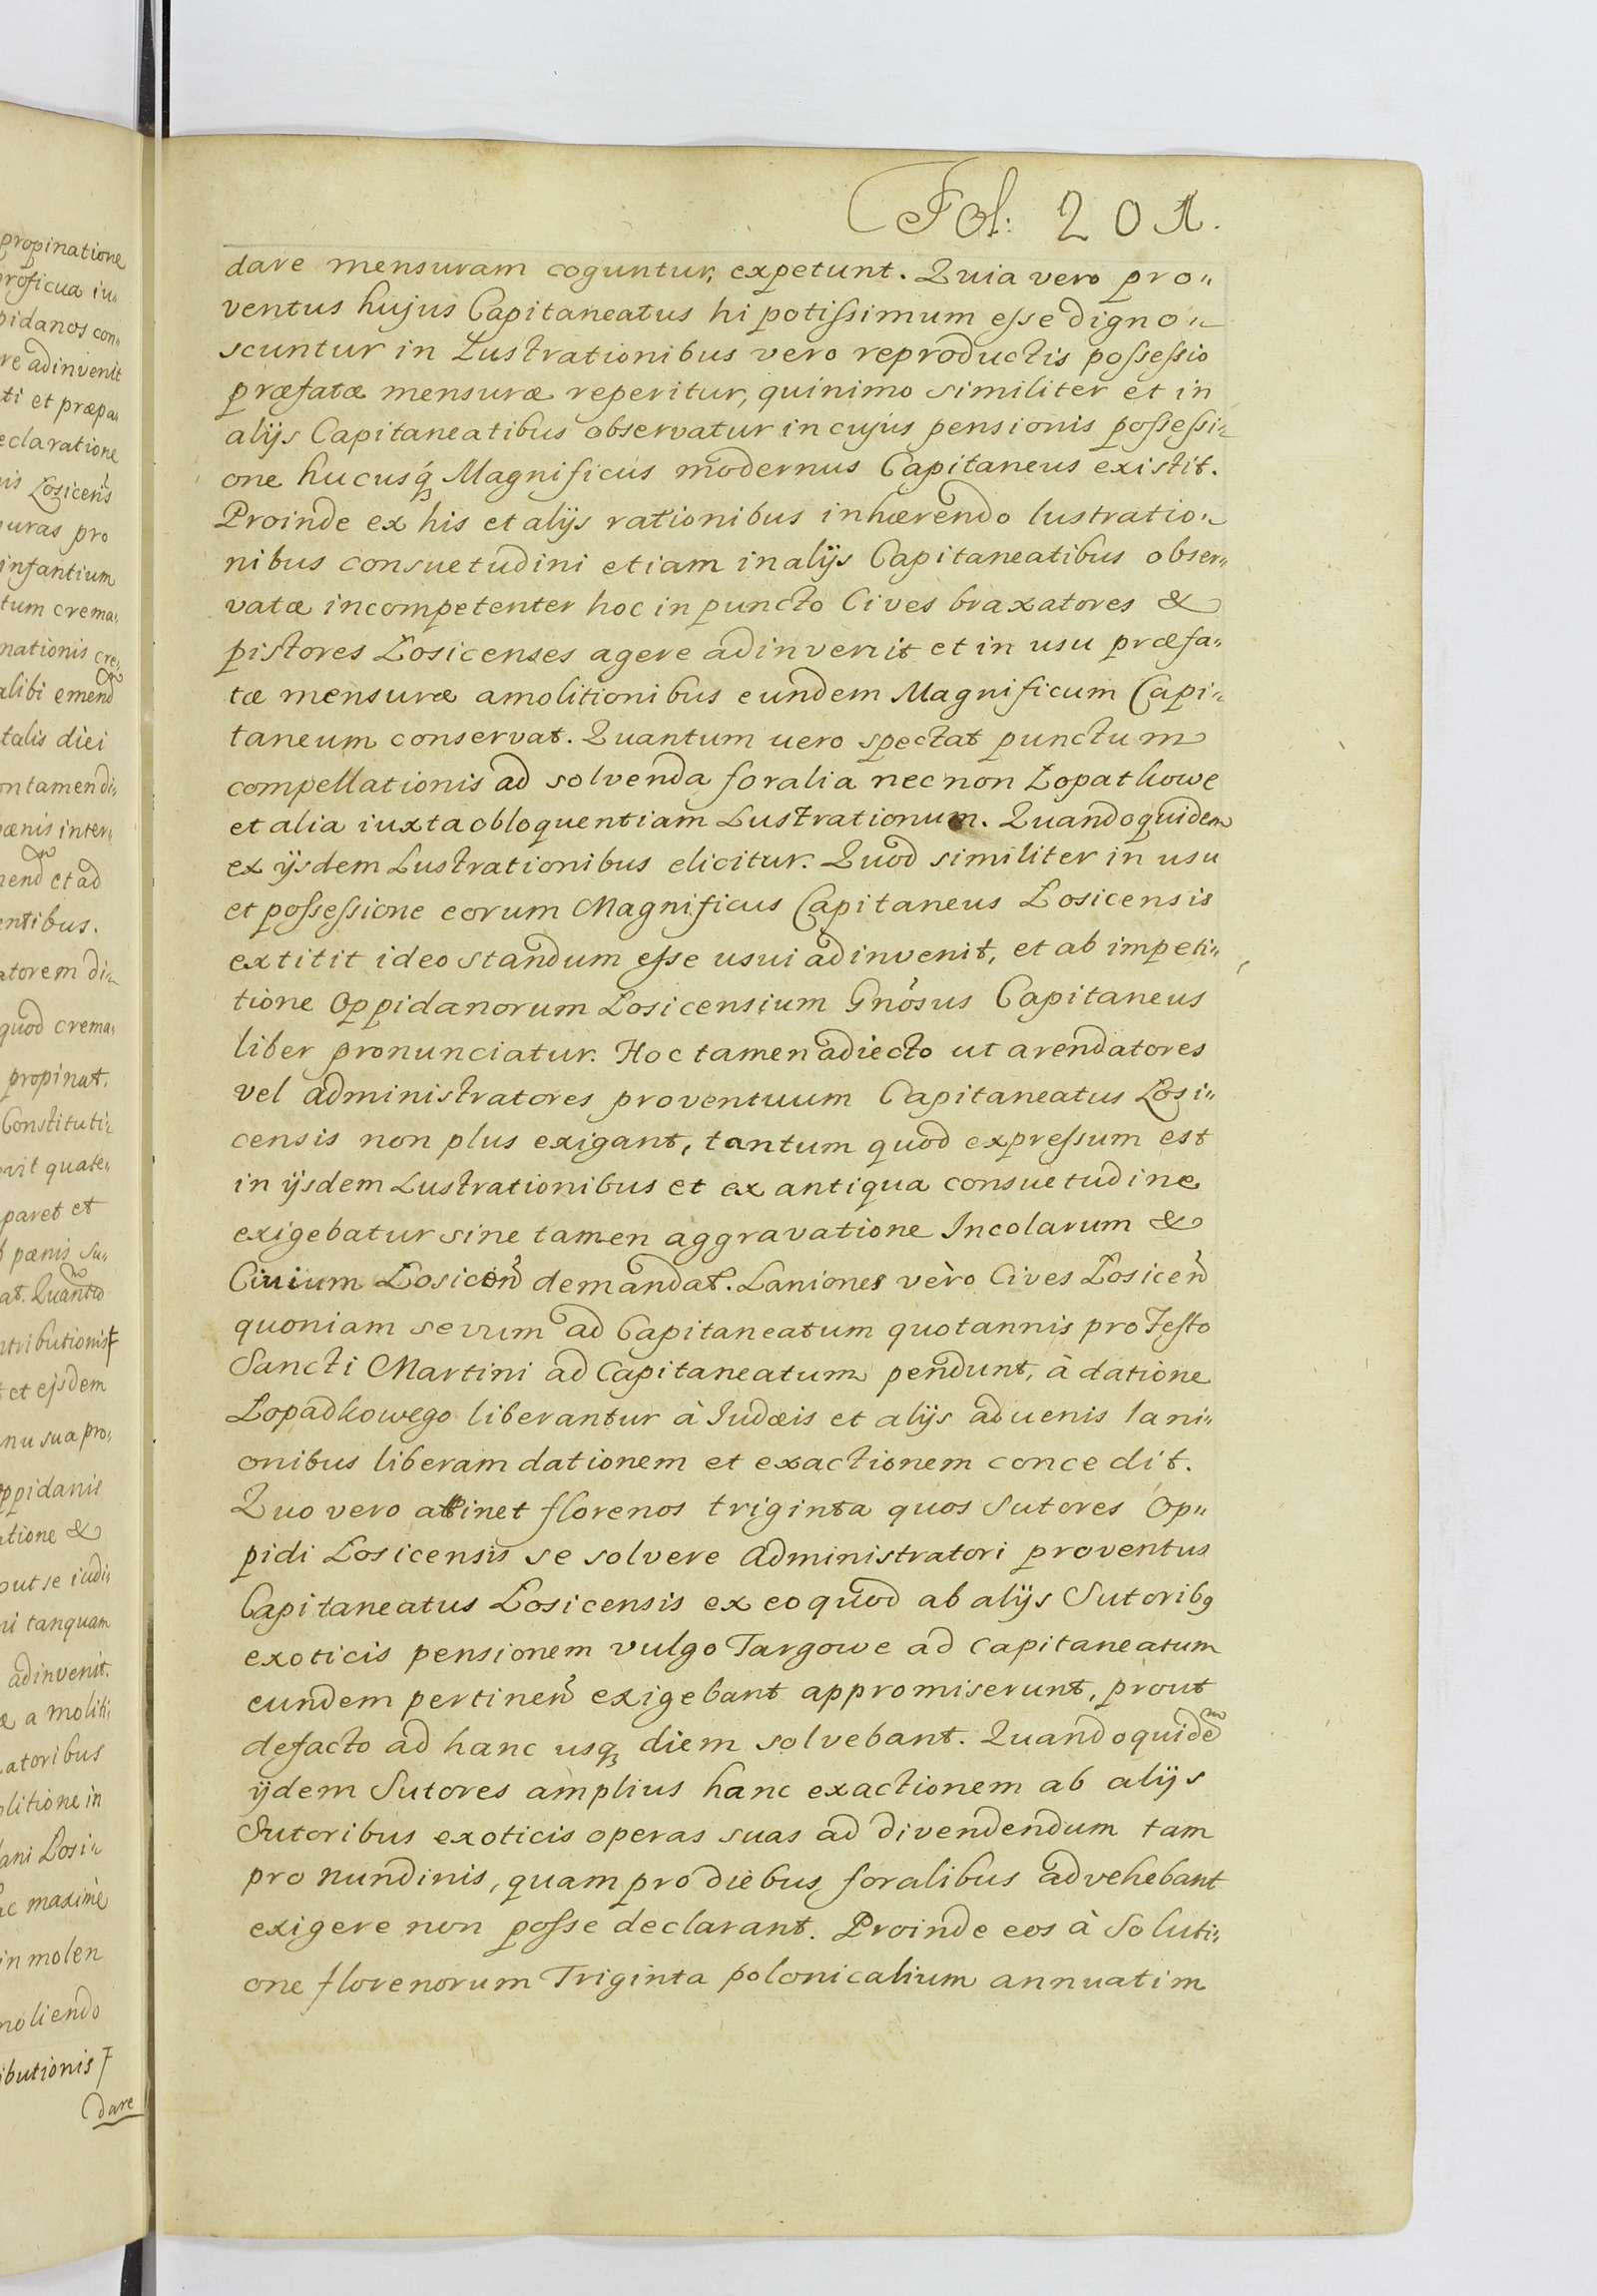 propinatione
roficua iu„
pidanos con„
re adinvenit
ti et præpa„
eclaratione
is Łosiceñs
uras pro
infantium
tum crema„
nationis cre„
alibi emend
talis diei
ontamendi„
pænis inter„
end et ad
entibus.
atorem di„
quod crema„
propinat.
Constituti„
vit quate„
paret et
pænis su„
at. Quantũ
ntributionis
et ejsdem
nu sua pro„
ppidanis
atione &
out se iudi„
ni tanquam
adinvenit.
æ a moliti„
atoribus
olitione in
ani Łosi„
ac maximè
in molen
moliendo
ibutionis
Dare
Fol: 201.
dare mensuram coguntur, expetunt. Quia vero pro„
ventus hujus Capitaneatus hi potissimum esse digno„
scuntur in Lustrationibus vero reproductis possessio
præfatæ mensuræ reperitur, quinimo similiter et in
alijs Capitaneatibus observatur in cujus pensionis possessi„
one hucusq́ꝫ Magnificus modernus Capitaneus existit.
Proinde ex his et alijs rationibus inhærendo lustratio„
nibus consuetudini etiam in alijs Capitaneatibus obser„
vatæ incompetenter hoc in puncto Cives braxatores &
pistores Łosicenses agere adinvenit et in usu præfa„
tæ mensuræ amolitionibus eundem Magnificum Capi„
taneum conservat. Quantum uero spectat punctum
compellationis ad solvenda foralia nec non Łopatkowe
et alia iuxta obloquentiam Lustrationum. Quandoquidem
ex ijsdem Lustrationibus elicitur. Quod similiter in usu
et possessione eorum Magnificus Capitaneus Łosicensis
extitit ideo standum esse usui adinvenit, et ab impeti„
tione Oppidanorum Łosicensium Gnõsus Capitaneus
liber pronunciatur. Hoc tamen adiecto ut arendatores
vel administratores proventuum Capitaneatus Łosi„
censis non plus exigant, tantum quod expressum est
in ijsdem Lustrationibus et ex antiqua consuetudine
exigebatur sine tamen aggravatione Incolarum &
Ciuium Łosiceñ demandat. Laniones vèro Cives Łosiceñ
quoniam sevum ad Capitaneatum quotannis pro Festo
Sancti Martini ad Capitaneatum pendunt, à datione
Łopadkowego liberantur à Iudæis et alijs aduenis lani„
onibus liberam dationem et exactionem concedit.
Quo vero attinet florenos triginta quos Sutores Op„
pidi Łosicensis se solvere Administratori proventus
Capitaneatus Łosicensis ex eo quod ab alijs Sutoribꝯ
exoticis pensionem vulgo Targowe ad Capitaneatum
eundem pertineñ exigebant appromiserunt, prout
defacto ad hanc usqꝫ diem solvebant. Quandoquidẽ
ijdem Sutores amplius hanc exactionem ab alijs
Sutoribus exoticis operas suas ad divendendum tam
pro nundinis, quam pro diebus foralibus advehebant
exigere non posse declarant. Proinde eos à Soluti„
one florenorum Triginta polonicalium annuatim